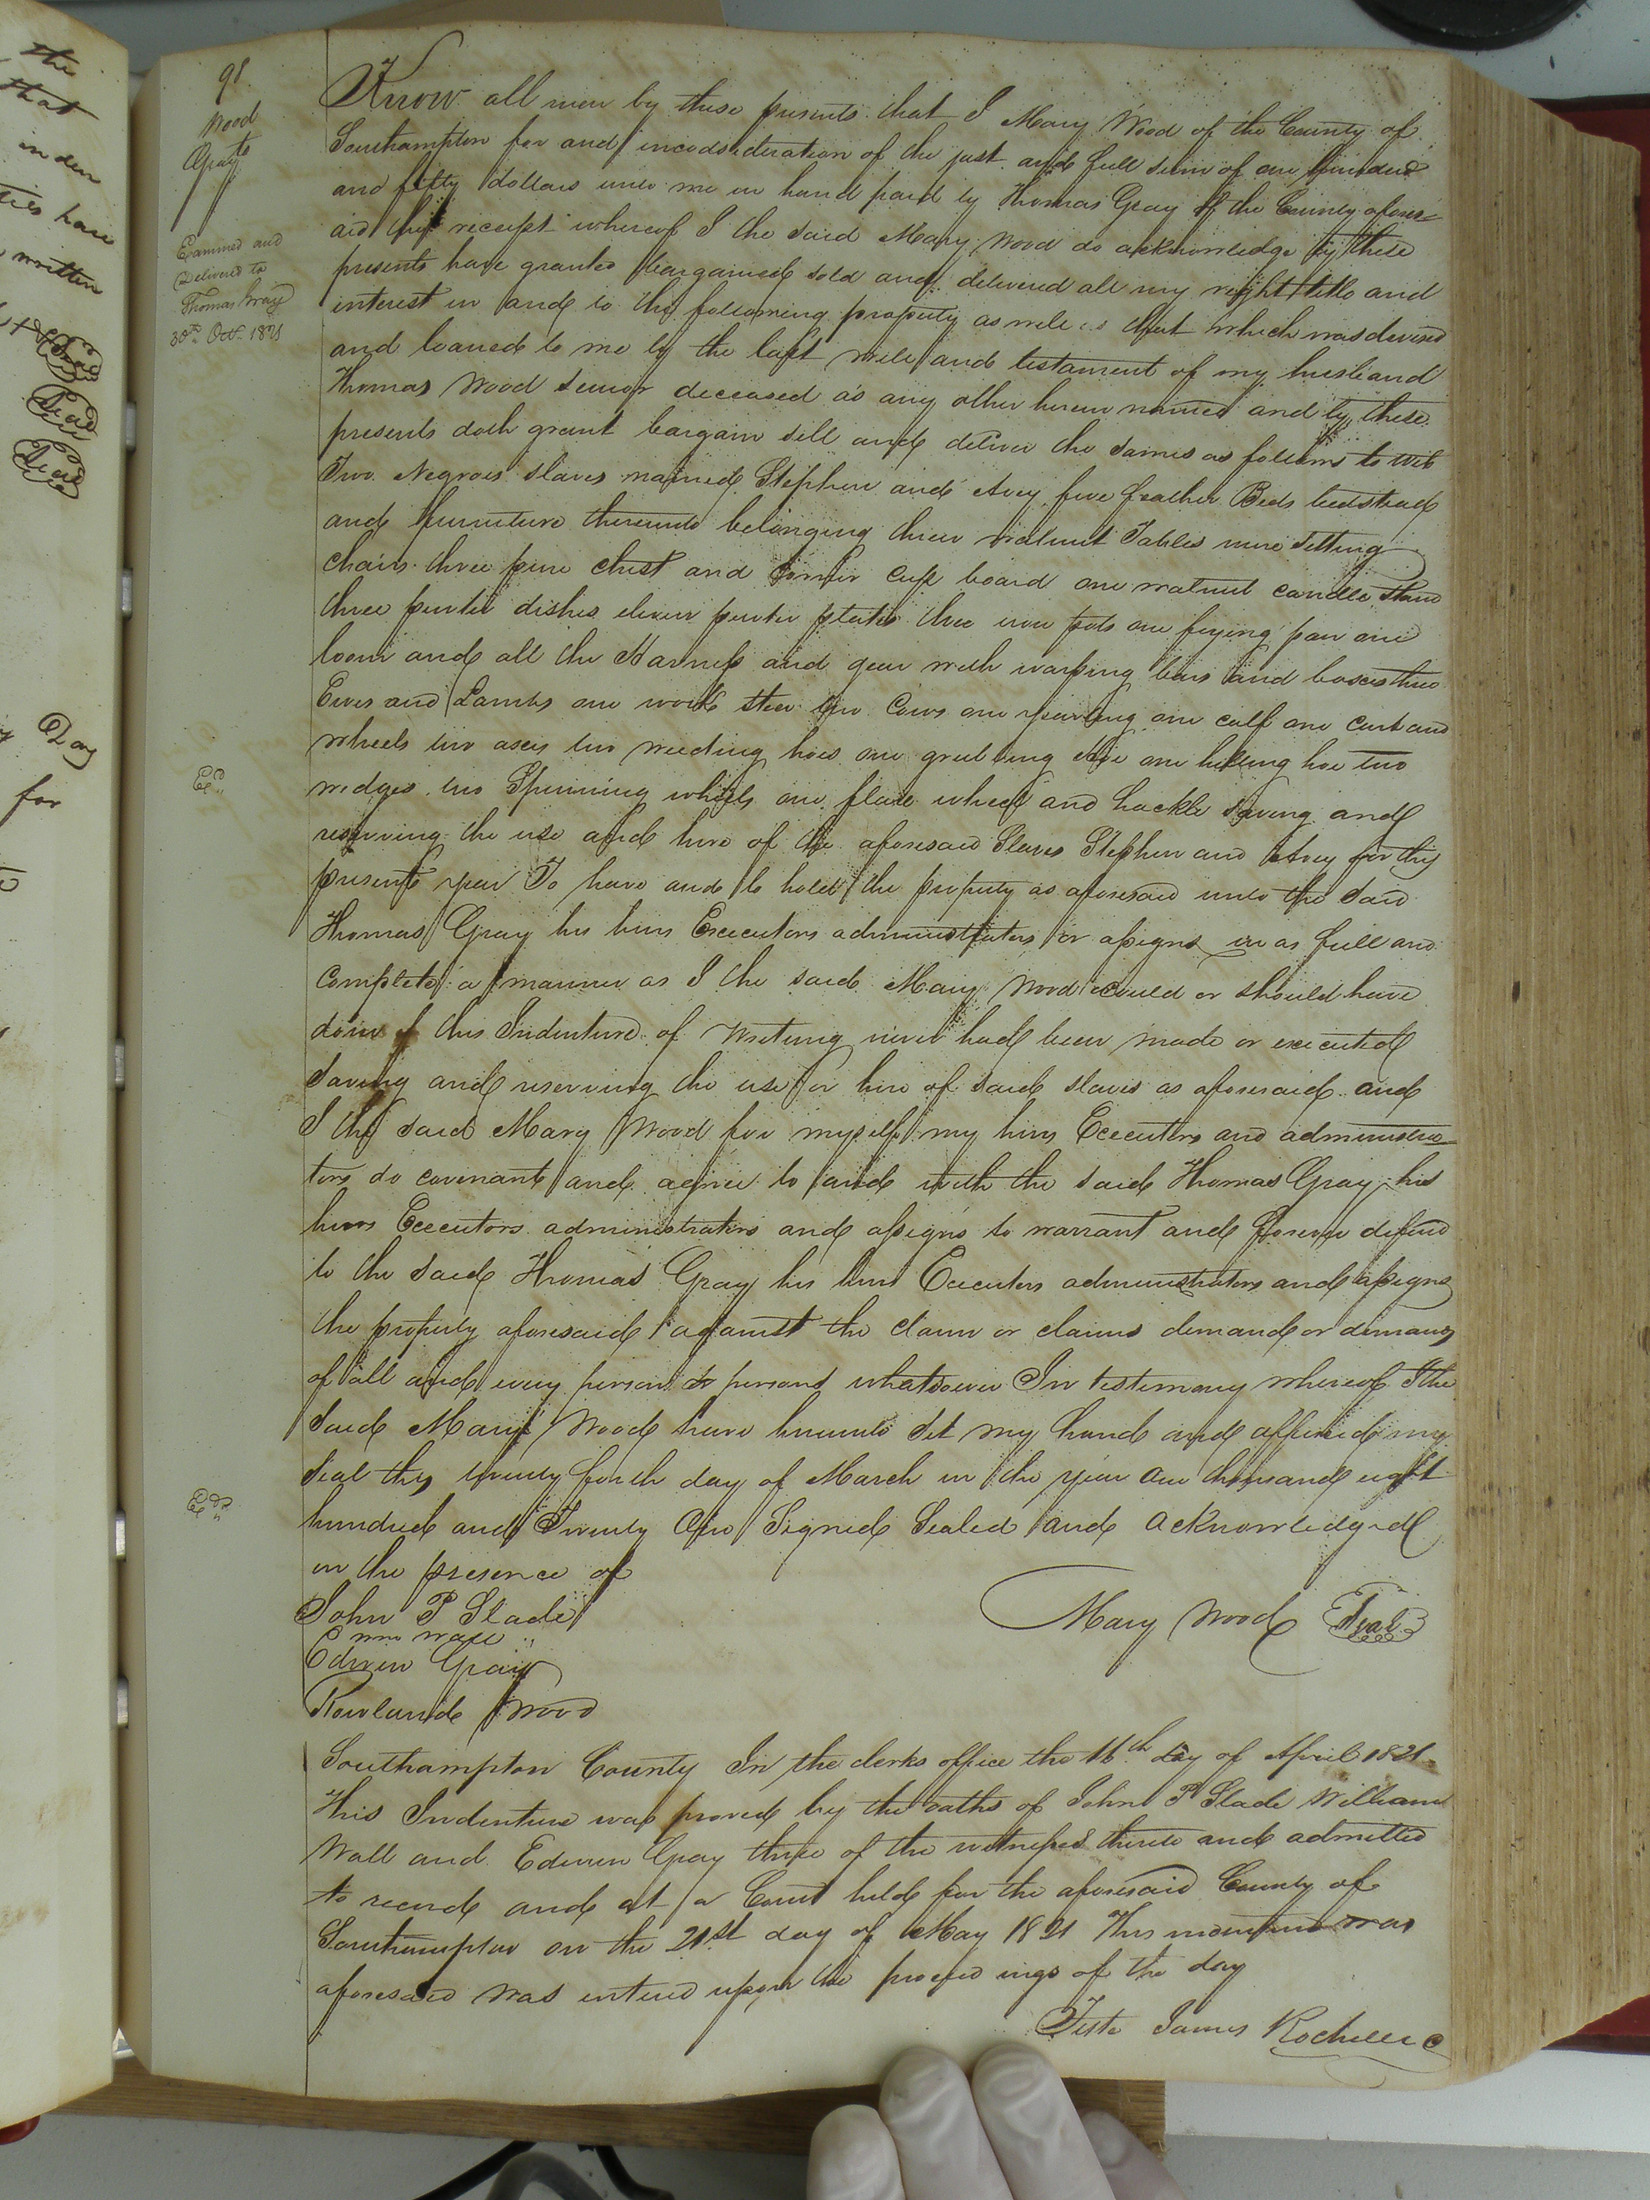 the
that
inden
ties have
written
Seal
Seal
Seal
Day
for
98
Wood
to
Gray
Examined and
Delivered to
Thomas Gray
30th Octr 1821
Exd
Exd
Know all men by these presents that I Mary Wood of the County of
Southampton for and inconsideration of the just and full sum of one hundred
and fifty dollars unto me in hand paid by Thomas Gray of the County afores=
aid the receipt whereof I the said Mary Wood do acknowledge by these
presents have granted bargained sold and delivered all my right title and
interest in and to the following property as well as that which was devised
and loaned to me by the last will and testament of my husband
Thomas Wood Senior deceased as any other herein named and by these
presents doth grant bargain sell and deliver the same as follows to wit
Two Negroes slaves named Stephen and Avey five feather Beds bedstead
and furniture thereunto belonging three walnut Tables nine setting
chairs three pine chest and Corner cup board one walnut candle stand
three pewter dishes eleven pewter plates three iron pots one frying pan one
loom and all the Harness and gear with warping bars and boxes three
Ewes and Lambs one work steer two Cows one yearling one calf one cart and
wheels two axes two weeding hoes one grubbing hoe one hilling hoe two
wedges two Spinning wheels one flax wheel and hackle saving and
reserving the use and hire of the aforesaid Slaves Stephen and Avey for this
present year To have and to hold the property as aforesaid unto the said
Thomas Gray his heirs Executors administrators or assigns in as full and
complete a manner as I the said Mary Wood could or should have
done if this Indenture of writing never had been made or executed
saving and reserving the use or hire of said slaves as aforesaid and
I the said Mary Wood for myself my heirs Executors and administra=
tors do covenant and agree to and with the said Thomas Gray his
heirs Executors administrators and assigns to warrant and forever defend
to the said Thomas Gray his heirs Executors administrators and assigns
the property aforesaid against the claim or claims demand or demands
of all and every person or persons whatsoever In testimony whereof I the
said Mary Wood have hereunto set my hand and affixed my
seal this twenty fourth day of March in the year One thousand eight
hundred and Twenty One Signed Sealed and acknowledged
in the presence of
John P Slade
Wm Wall
Edwin Gray
Rowland Wood
Mary Wood Seal
Southampton County In the clerks office the 16th day of April 1821
This Indenture was proved by the oaths of John P Slade William
Wall and Edwin Gray three of the witnesses thereto and admitted
to record and at a Court held for the aforesaid County of
Southampton on the 21st day of May 1821 This indenture was
aforesaid was entered upon the proceedings of the day
Teste James Rochelle C